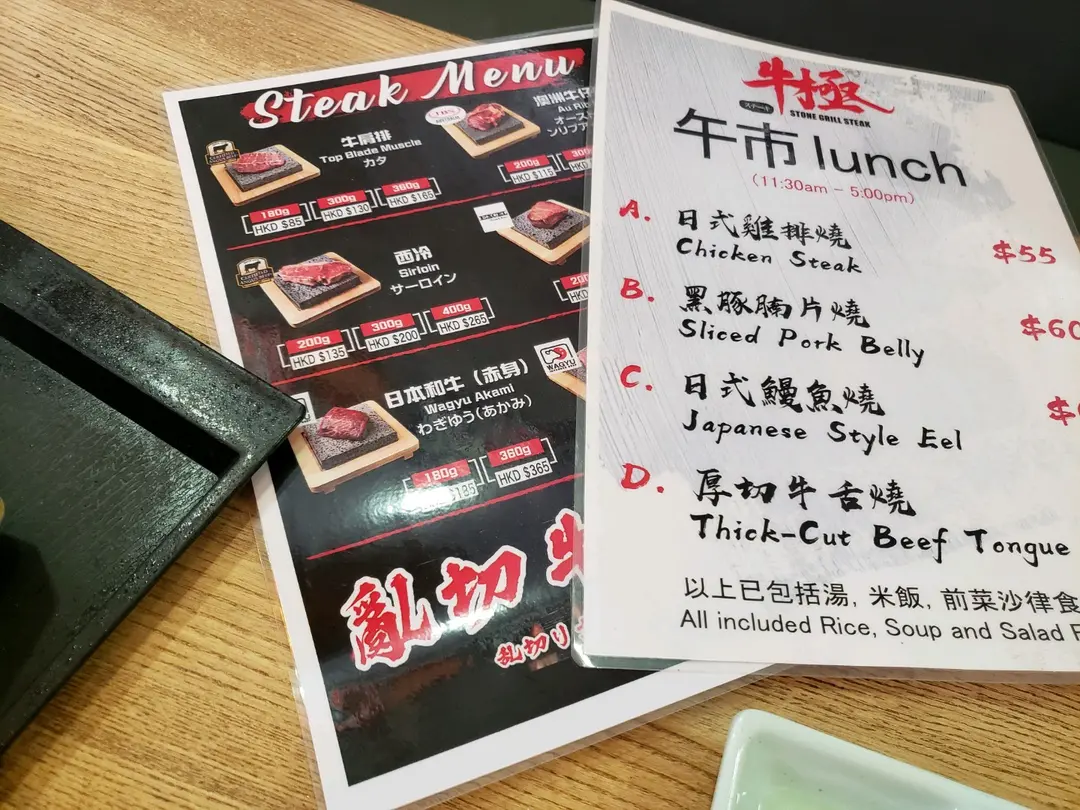 Steak Menu
牛肩排
Top Blade Muscle
カタ
180g
HKD $85
300g
HKD $130
360g
HKD $165
澳洲牛仔
Au Rib
オースト
ンリブア
200g
HKD $115
300
HKD
西冷
Sirloin
サーロイン
200g
HKD $135
300g
HKD $200
400g
HKD $265
EXCEL
200
HKD
日本和牛（赤身）
Wagyu Akami
わぎゆう(あかみ)
180g
$185
360g
HKD $365
WAGYU
亂切牛
乱切り
牛極
ステーキ
STONE GRILL STEAK
午市 lunch
(11:30am - 5:00pm)
A. 日式雞排燒 $55
Chicken Steak
B. 黑豚腩片燒 $60
Sliced Pork Belly
C. 日式鰻魚燒 $
Japanese Style Eel
D. 厚切牛舌燒
Thick-Cut Beef Tongue
以上已包括湯, 米飯, 前菜沙律食
All included Rice, Soup and Salad